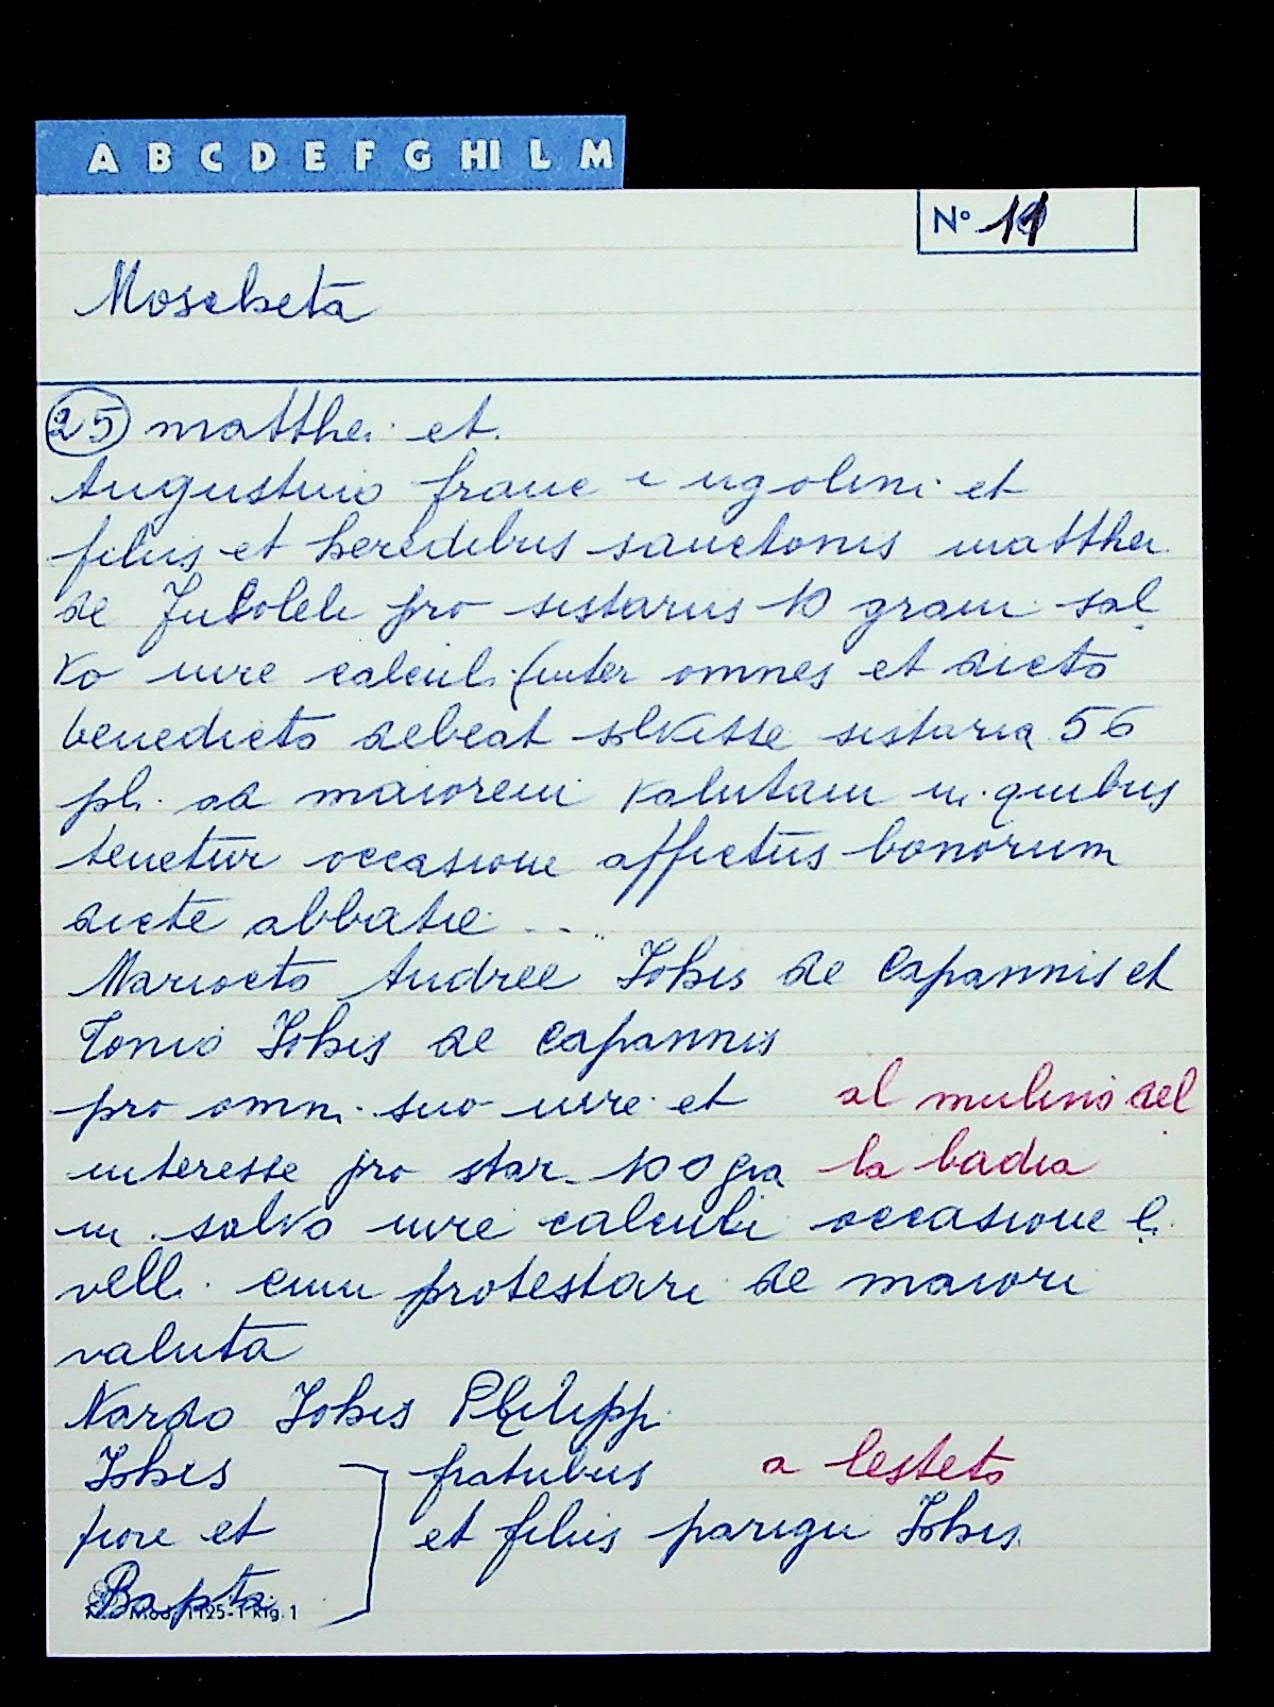 A B C D E F G HI L M
N° 11
Moscheta
25 matthei et
Augustino franc i ugolini et
filiis et heredibus sanctonis matthei
de pro sistariis 10 grani sal
vo iure calculi (inter omnes et dicto
benedicto debeat solvisse sistaria 56
pl. ad maiorem valutam in quibus
tenetur occasione affictus bonorum
dicte abbatie ...
Mariocto Andree Johis de Capannis et
Tonio Johis de Capannis
pro omni suo iure et al mulino del
interesse pro star. 100 gra la badia
ni salvo iure calculi occasione li
velli cum protestari de maiori
valuta
Nardo Johis Philippi
Johis fratribus a lesteto
fiore et et filiis parigii Johis
Bapta
Mod. 1125-1 Rig. 1